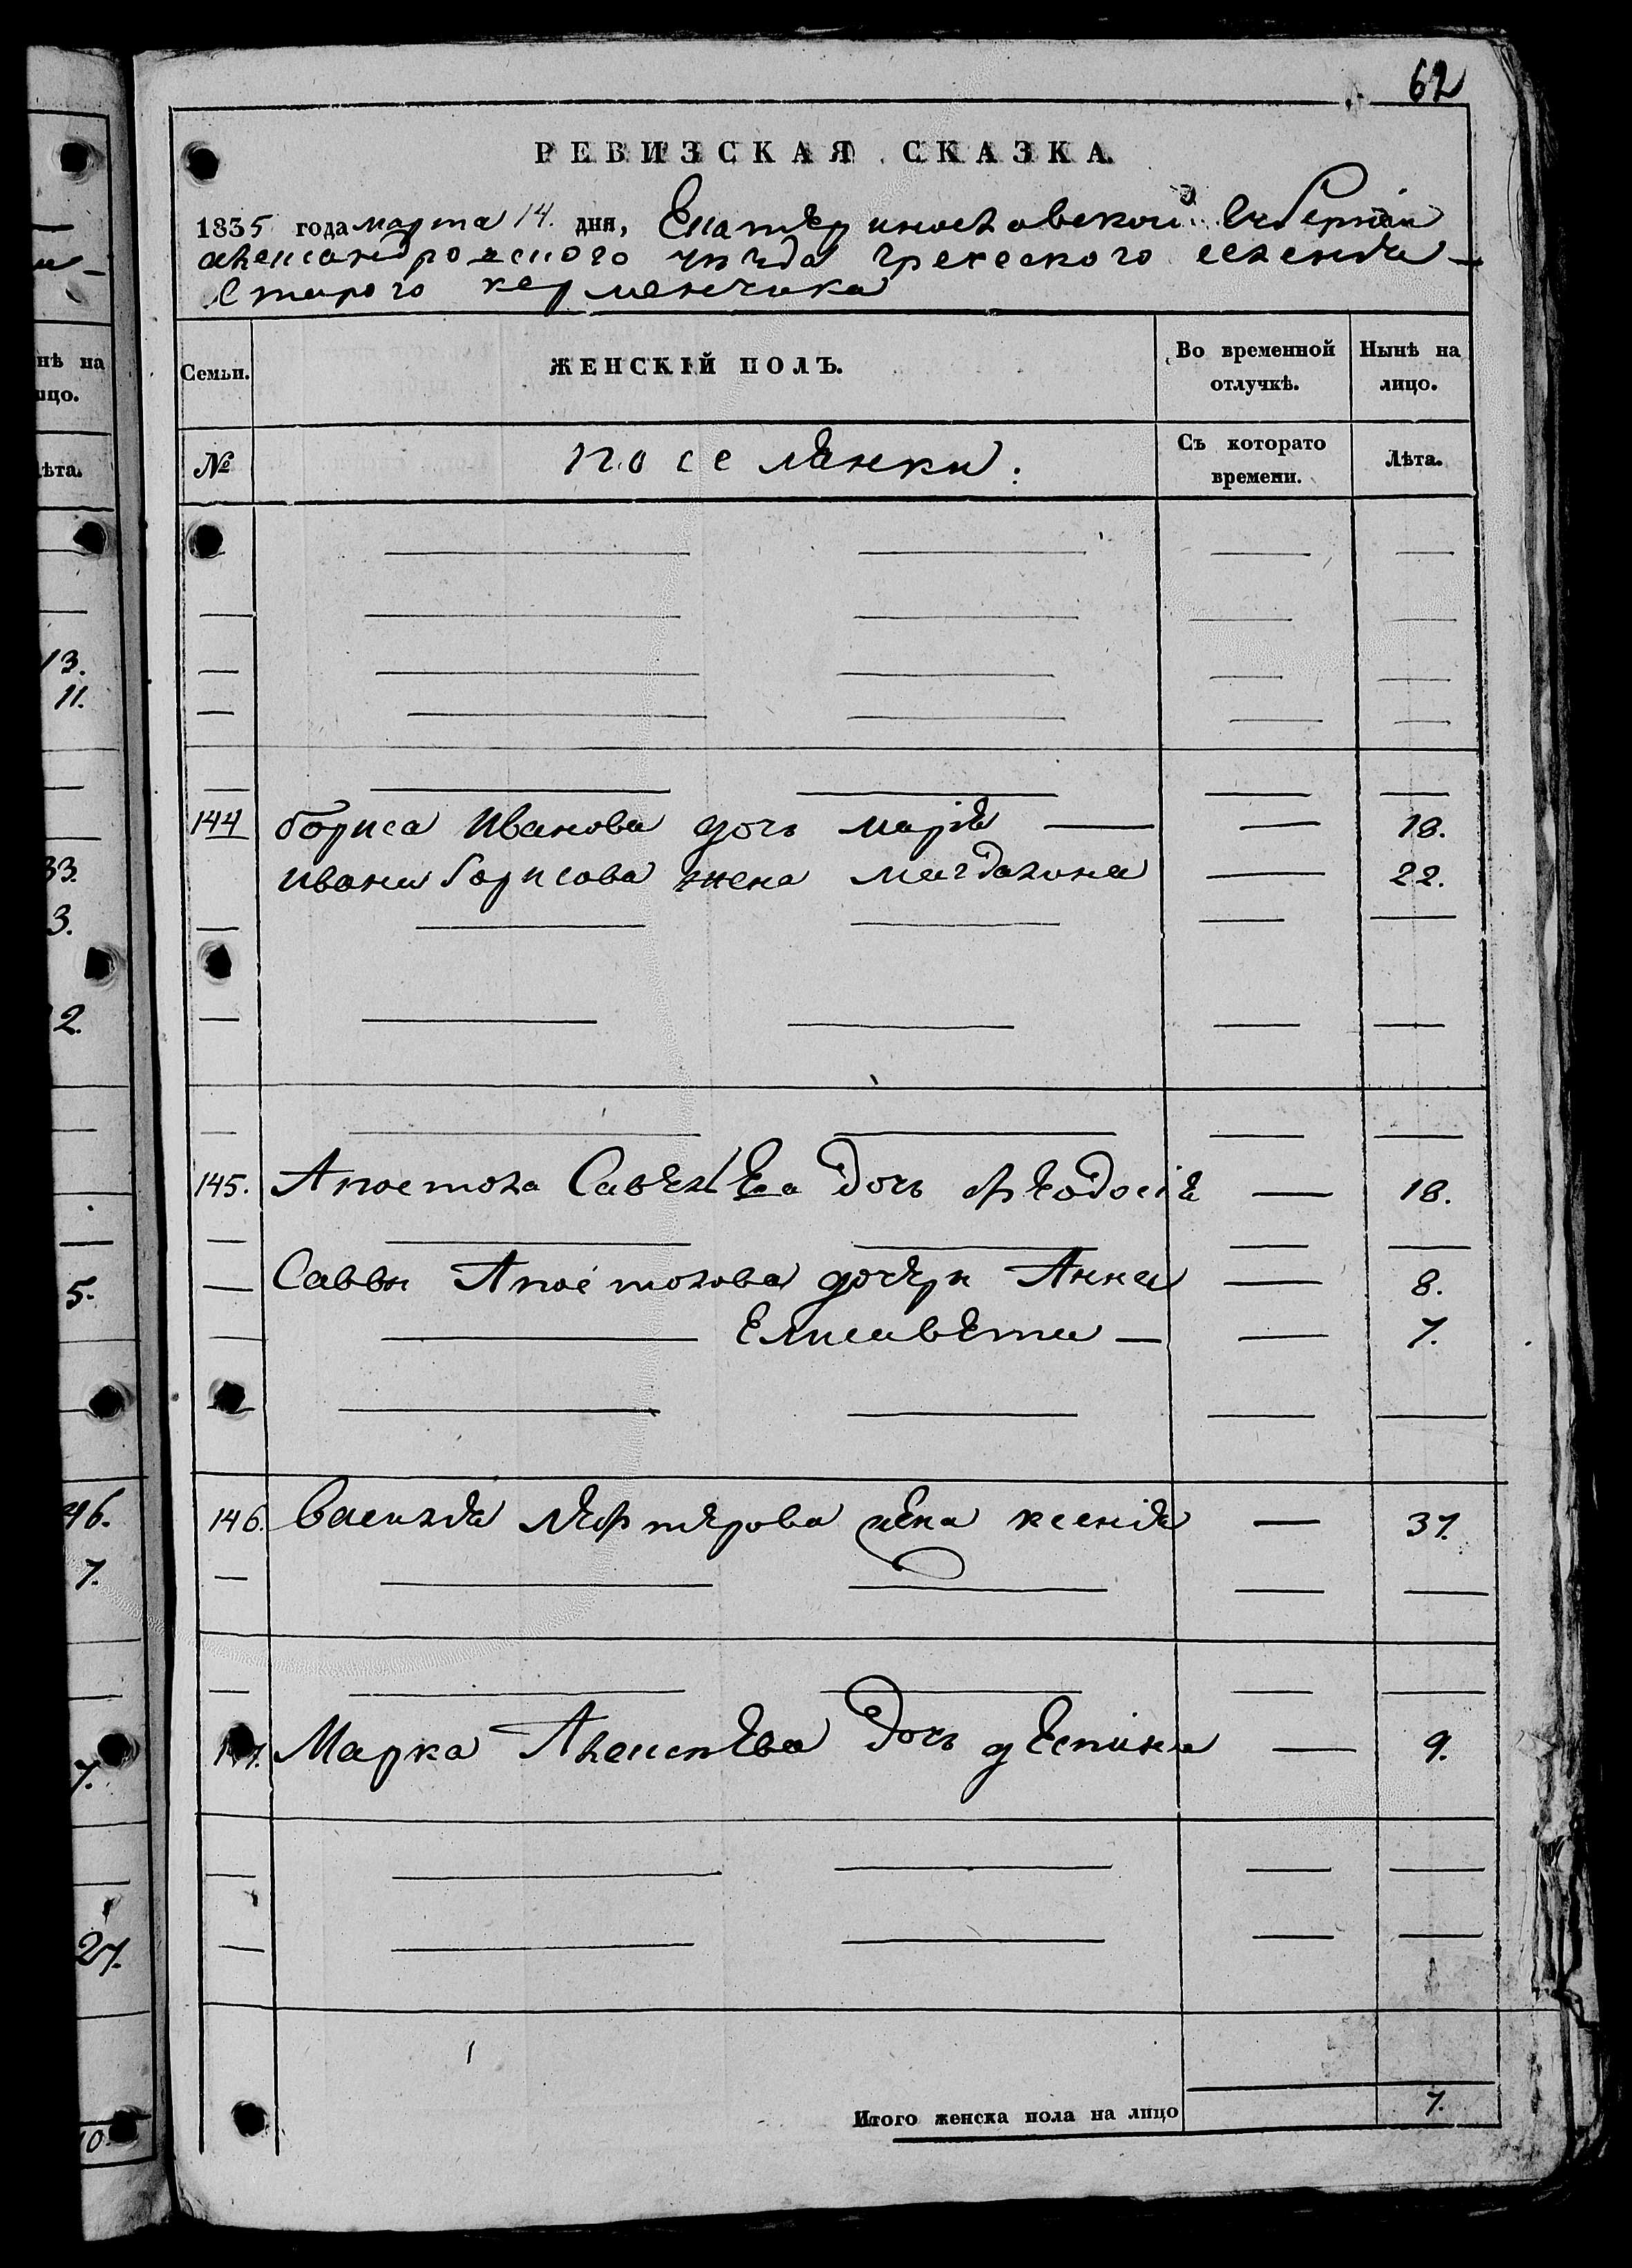 62
РЕВИЗСКАЯ СКАЗКА
1835 года марта 14. дня, Екатеринословской Губернiи
александровского уезда греческого селенiя
Старого керменчика
Семьи. ЖЕНСКІЙ ПОЛЪ. Во временной отлучкѣ. Нынѣ на лицо.
№ поселянки: Съ которато времени. Лѣта.
144 бориса Иванова дочь марiя 18.
ивана борисова жена магдалина 22.
145. Апостола Савельева дочь феодосiя 18.
Саввы Апостолова дочери Анна 8.
Елисавета 7.
146. Василiя Лефтерова жена ксенiя 37.
147. Марка Алексеева дочь деспина 9.
Итого женска пола на лицо 7.
нѣ на
ицо.
ѣта.
13.
11.
33.
3.
2.
5.
46.
7.
7.
27.
10